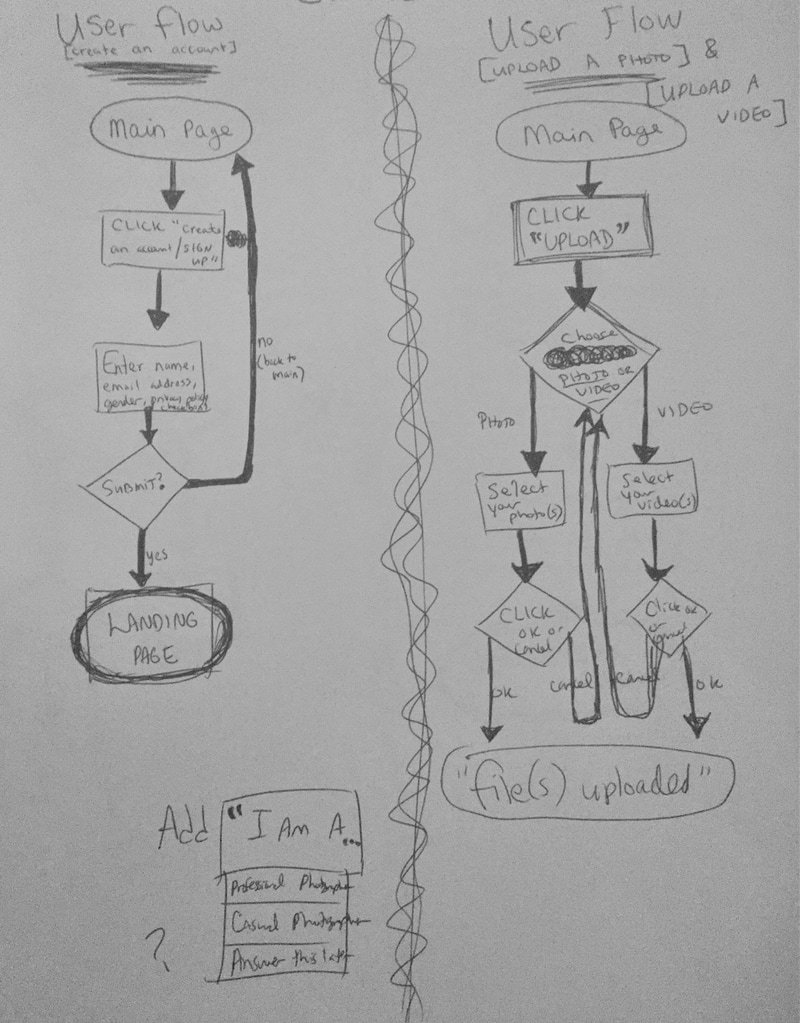 User Flow
[create an account]
Main Page
CLICK "Create
an acount/SIGN
UP"
Enter name,
email address,
gender, privacy policy
no
(back to
main)
SUBMIT?
yes
LANDING
PAGE
Add "I AM A...
Professional Photographer
Casual Photographer
Answer this later
?
User Flow
[UPLOAD A PHOTO] &
[UPLOAD A
VIDEO]
Main Page
CLICK
"UPLOAD"
Choose
PHOTO OR
VIDEO
PHOTO
VIDEO
Select
your
photo(s)
Select
your
video(s)
CLICK
OK or
cancel
Click ok
or
cancel
OK
cancel
cancel
OK
"file(s) uploaded"